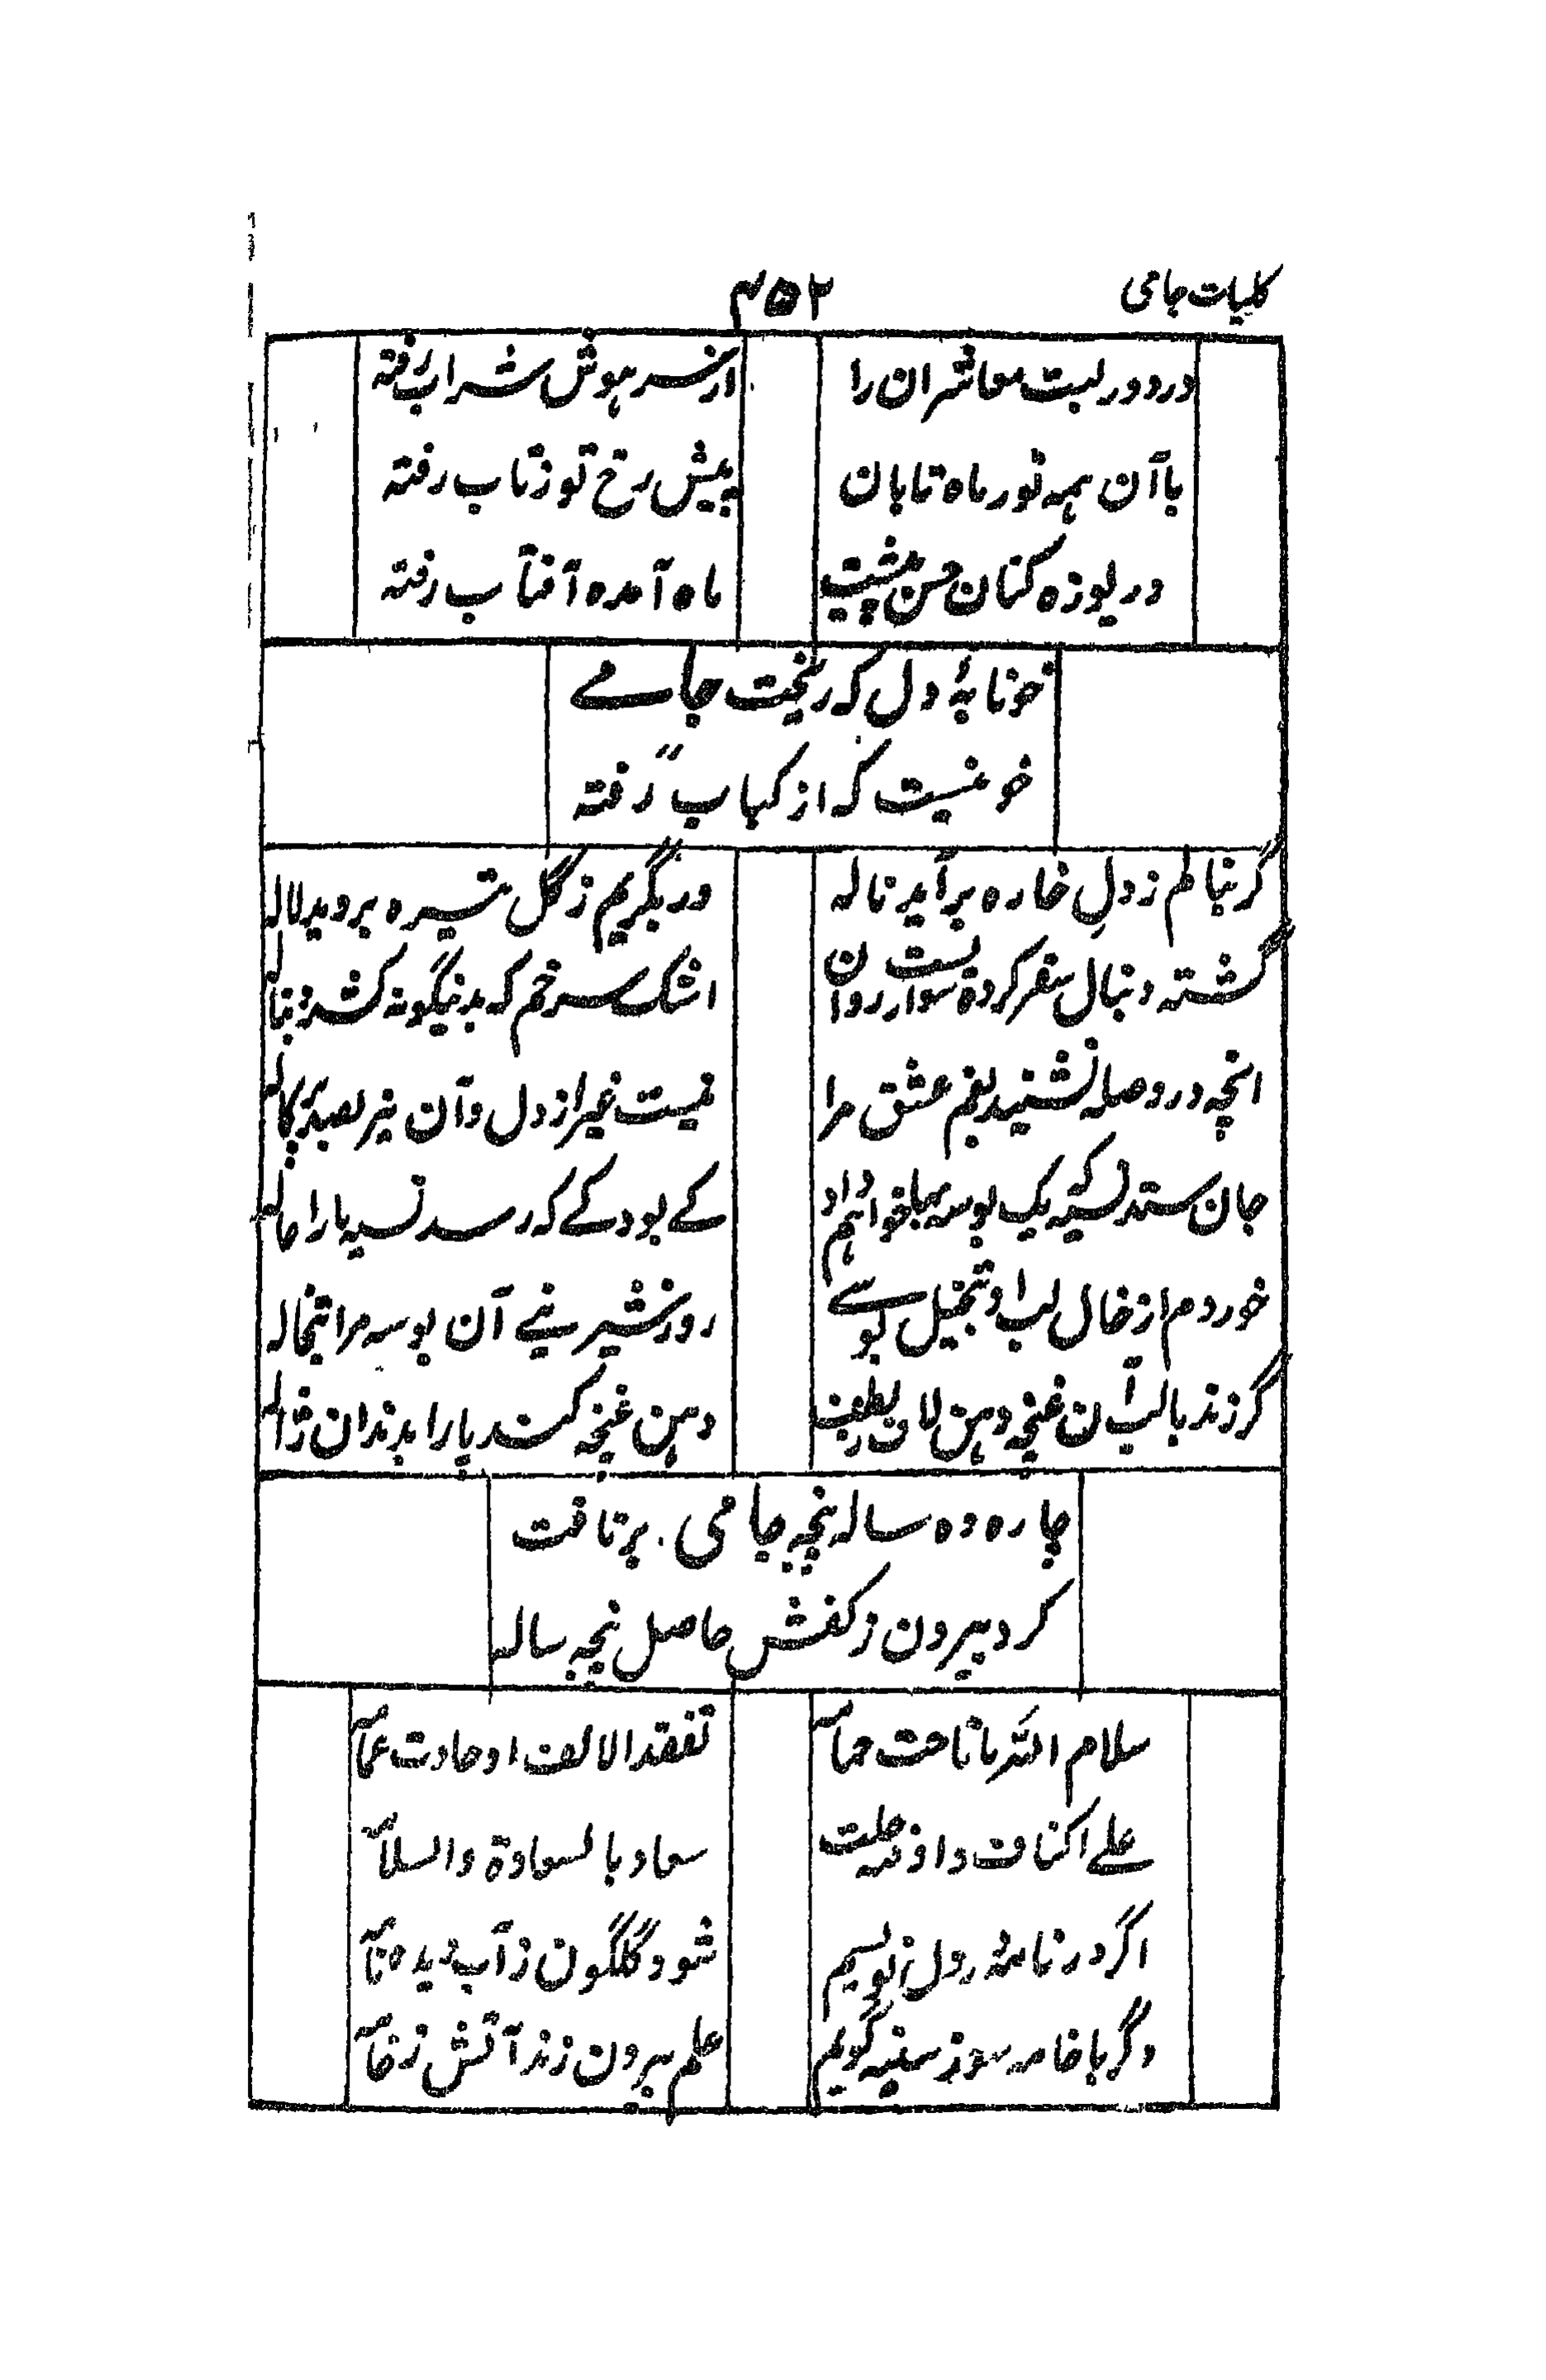 کلیات جامی
۴۵۲
در دور لبت معاشران را
از سر هوش شراب رفته
با آن همه نور ماه تابان
پیش رخ تو ز تاب رفته
دریوزه کنان حسن پیشت
ماه آمده آفتاب رفته
خونابهٔ دل که ریخت جامے
خونیست که از کباب رفته
گر بنالم ز دلِ خاره برآید ناله
ور بگریم ز گل تیره بروید لاله
گشته دنبال سفر کرده سواریست روان
اشک سرخم که بدینگونه کشد دنباله
انچه در وصله نشنید بغم عشق مرا
نیست غیر از دل و آن نیز بصد پرکاله
جان ستد نسیه یک بوسه بها خواهم داد
کے بود کے که رسد نسیه ما را حاله
خوردم از خال لب او بتخیل بوسے
روز شیرینے آن بوسه مرا تبخاله
گر زند با لب آن غنچه دهن لاف لطف
دهن غنچه کند پاره بدندان ژاله
چارده ساله پنجه جامی برتافت
کرد بیرون ز کفش حاصل پنجه ساله
سلام الله ما ناحت حمامه
تفقد الالف او حادت غمامه
علے اکناف واد فیه حلت
سعاد بالسعادة والسلامه
اگر در نامه درد دل نویسم
شود گلگون ز آب دیده نامه
وگر با خامه سوز سینه گویم
علم بیرون زند آتش ز خامه